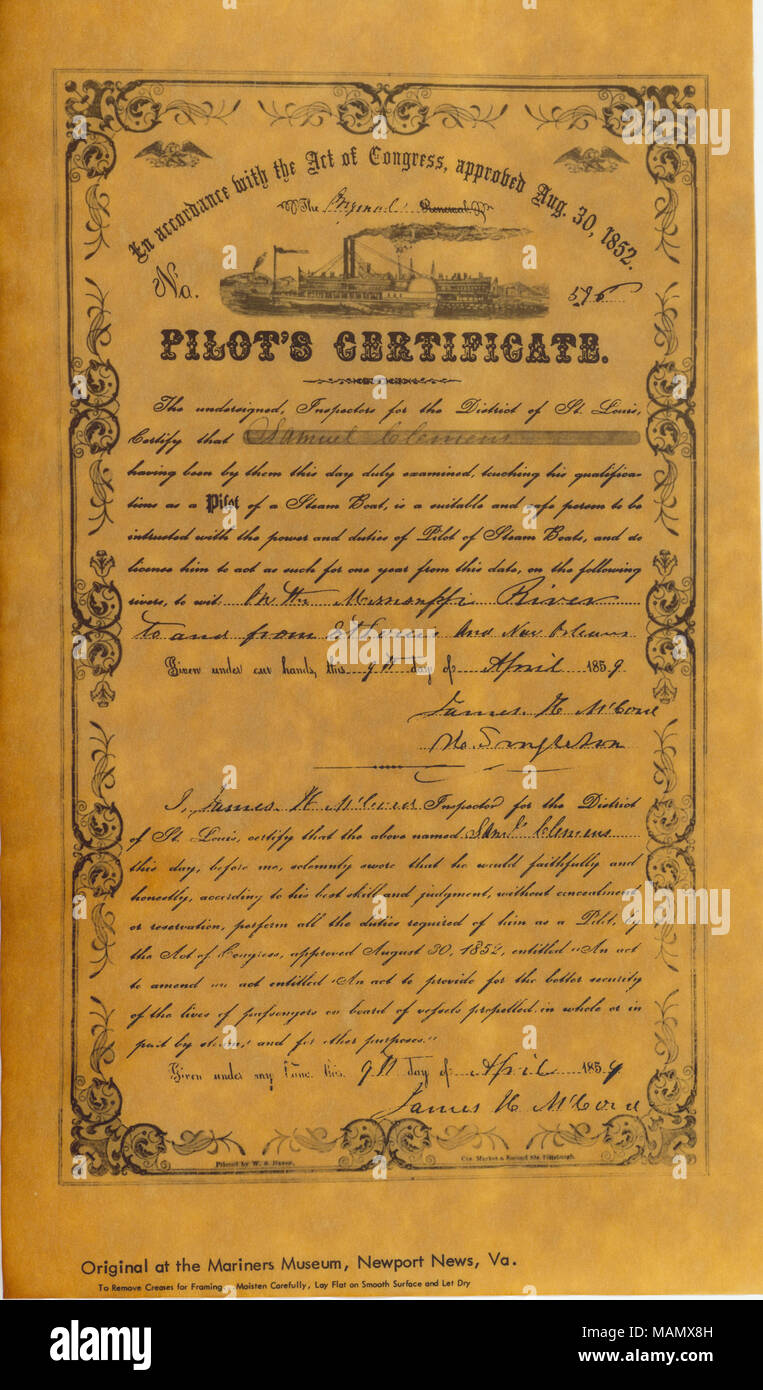 In accordance with the Act of Congress, approved Aug. 30, 1852.
The Original Renewal
No. 596
PILOT'S CERTIFICATE.
The undersigned, Inspectors for the District of St. Louis,
Certify that Samuel Clemens
having been by them this day duly examined, touching his qualifica-
tions as a Pilot of a Steam Boat, is a suitable and safe person to be
intrusted with the power and duties of Pilot of Steam Boats, and do
license him to act as such for one year from this date, on the following
rivers, to wit. On the Mississippi River
to and from St Louis And New Orleans
Given under our hands, this 9th day of April 1859
James H McCord
Singleton
I, James H McCord Inspector for the District
of St. Louis, certify that the above named Saml Clemens
this day, before me, solemnly swore that he would faithfully and
honestly, according to his best skill and judgment, without concealment
or reservation, perform all the duties required of him as a Pilot, by
the Act of Congress, approved August 30, 1852, entitled "An act
to amend an act entitled "An act to provide for the better security
of the lives of passengers on board of vessels propelled in whole or in
part by steam," and for other purposes."
Given under my this 9th day of April 1859
James H McCord
Printed by W. S. Haven, Cor. Market & Second Sts. Pittsburgh.
Original at the Mariners Museum, Newport News, Va.
To Remove Creases for Framing... Moisten Carefully, Lay Flat on Smooth Surface and Let Dry
alamy
alamy
Image ID: MAMX8H
www.alamy.com